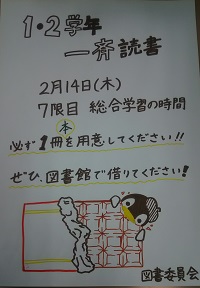 1・2学年
一斉読書
2月14日(木)
7限目 総合学習の時間
必ず1冊本を用意してください!!
ぜひ、図書館で借りてください!
図書委員会